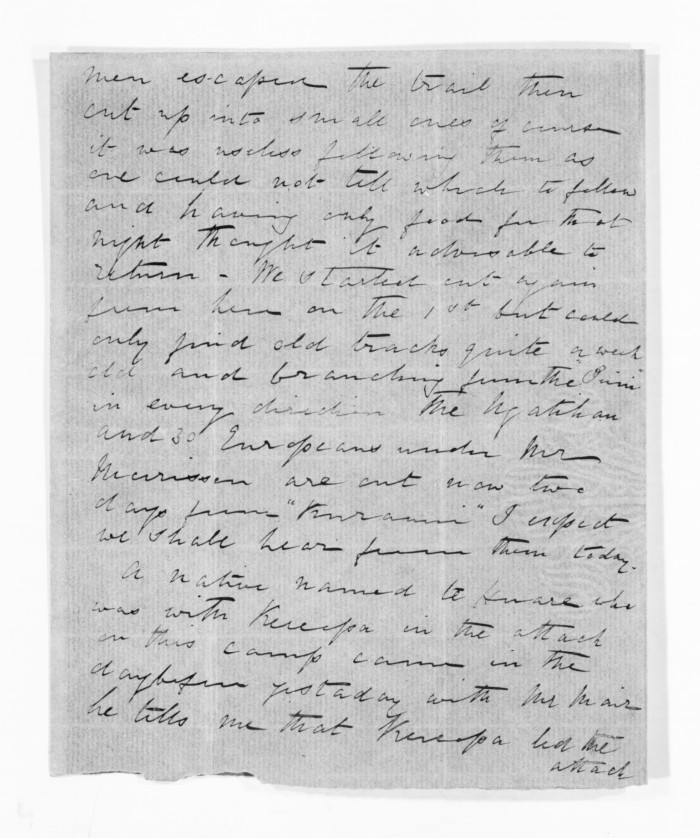 men escaped the trail then
cut up into small ones of course
it was useless following them as
one could not tell which to follow
and having only food for that
night thought it advisable to
return - We started out again
from here on the 1st but could
only find old tracks quite a week
old and branching from the "Piripiri"
in every direction The Ngatihau
and 30 Europeans under Mr
are out now two
days from "Kuraunui" I expect
we shall hear from them today.
A native named te Huare who
was with Kereopa in the attack
on this camp came in the
daybefore yestaday with Mr Mair
he tells me that Kereopa led the
attack